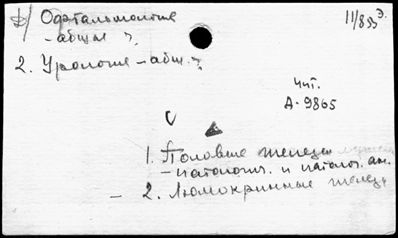 1) Офтальмология
11/8 83 э.
- общая ч.
2. Урология - общ. ч.
чит.
А-9865
V
1. Половые железы
- патология. и патолог. ан.
- 2. Эндокринные железы